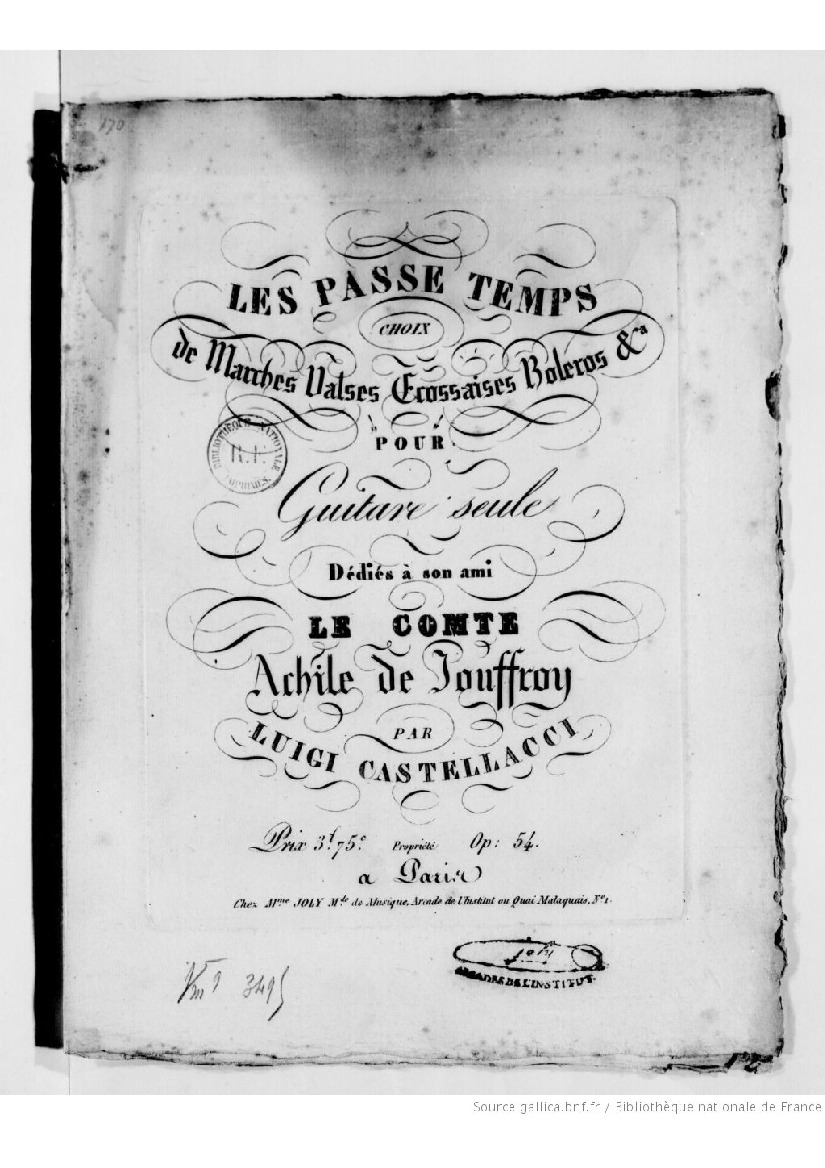 170
LES PASSE TEMPS
CHOIX
de Marches Valses Ecossaises Boleros &a
POUR
BIBLIOTHÈQUE NATIONALE
R.F.
IMPRIMÉS
Guitare seule
Dédiés à son ami
LE COMTE
Achile de Jouffroy
PAR
LUIGI CASTELLACCI
Prix 3f 75c Propriété Op: 54.
a Paris
Chez Mme JOLY Mde de Musique, Arcade de l'Institut ou Quai Malaquais, No 1.
Joly
ARCADES DE L'INSTITUT.
Vm9 3495
Source gallica.bnf.fr / Bibliothèque nationale de France